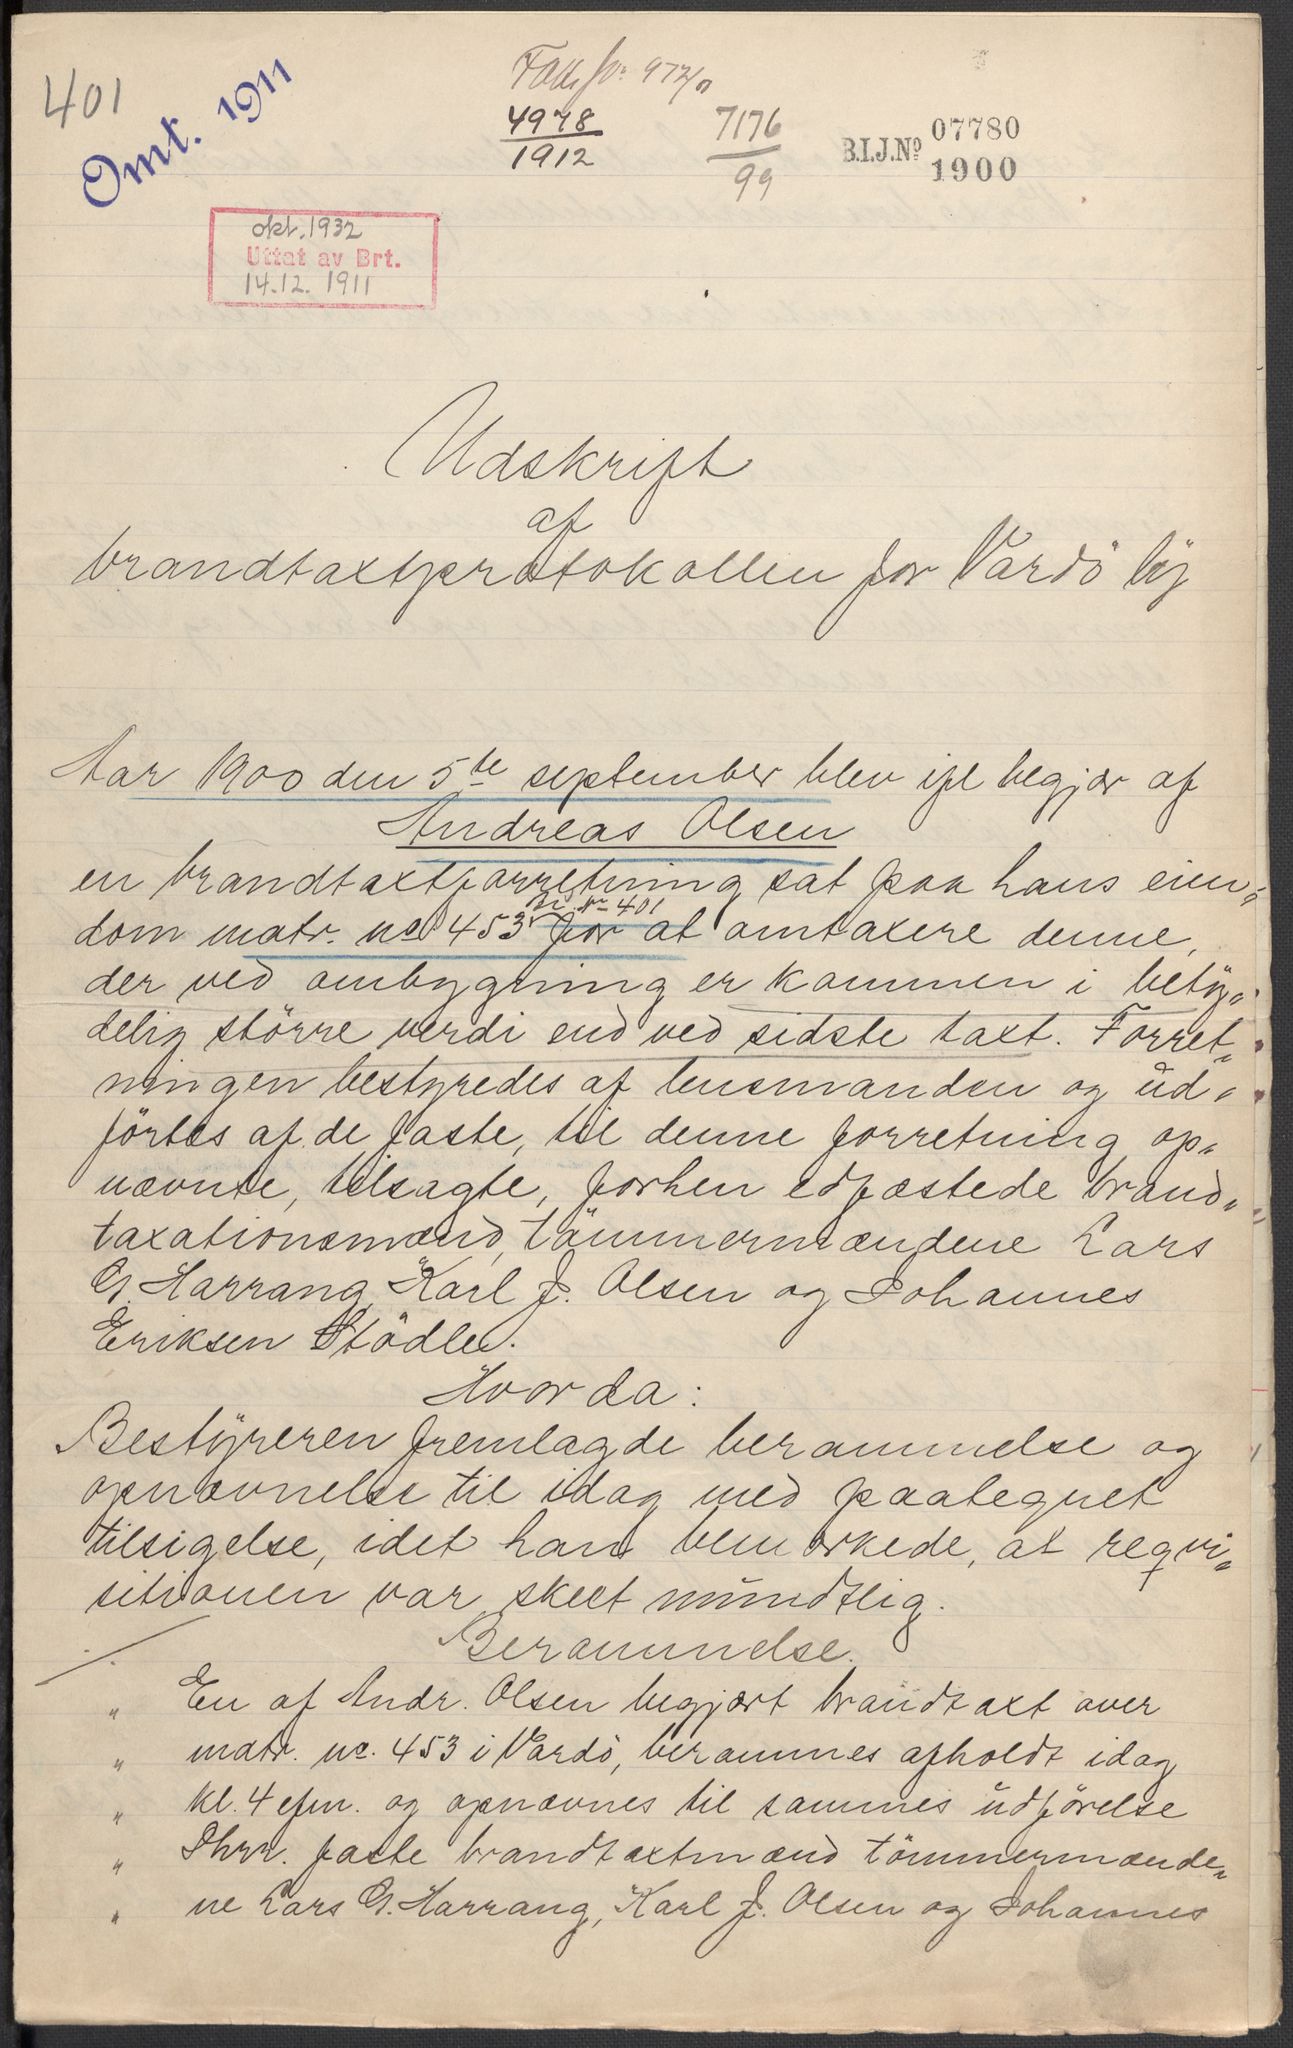 401
Omt. 1911
4978
1912
7176
99
B.I.J.Nº 07780
1900
okt. 1932
Uttat av Brt.
14.12. 1911
Udskrift
af
brandtaxtprotokollen for Vardö by
Aar 1900 den 5te september blev ifl begjær af
Andreas Olsen
en brandtaxtforretning sat paa hans eien„
Br. Nr. 401
dom matr. no 453 for at omtaxere denne,
der ved ombygning er kommen i betÿ„
delig större verdi end ved sidste taxt. Forret„
ningen bestyredes af lensmanden og ud„
förtes af de faste, til denne forretning op„
nævnte, tilsagte, forhen edfæstede brand„
taxationsmænd, tömmermændene Lars
G. Harrang, Karl J. Olsen og Johannes
Eriksen Stödle.
Hvor da:
Bestÿreren fremlagde berammelse og
opnævnelse til idag med paategnet
tilsigelse, idet han bemærkede, at reqvi„
sitionen var skeet mundtlig.
Berammelse.
„ En af Andr. Olsen begjært brandtaxt over
„ matr. no. 453 i Vardö, berammes afholdt idag
„ kl. 4 efm. og opnævnes til sammes udförelse
„ Dhrr. faste brandtaxtmænd tömmermænde„
„ ne Lars G. Harrang, Karl J. Olsen og Johannes